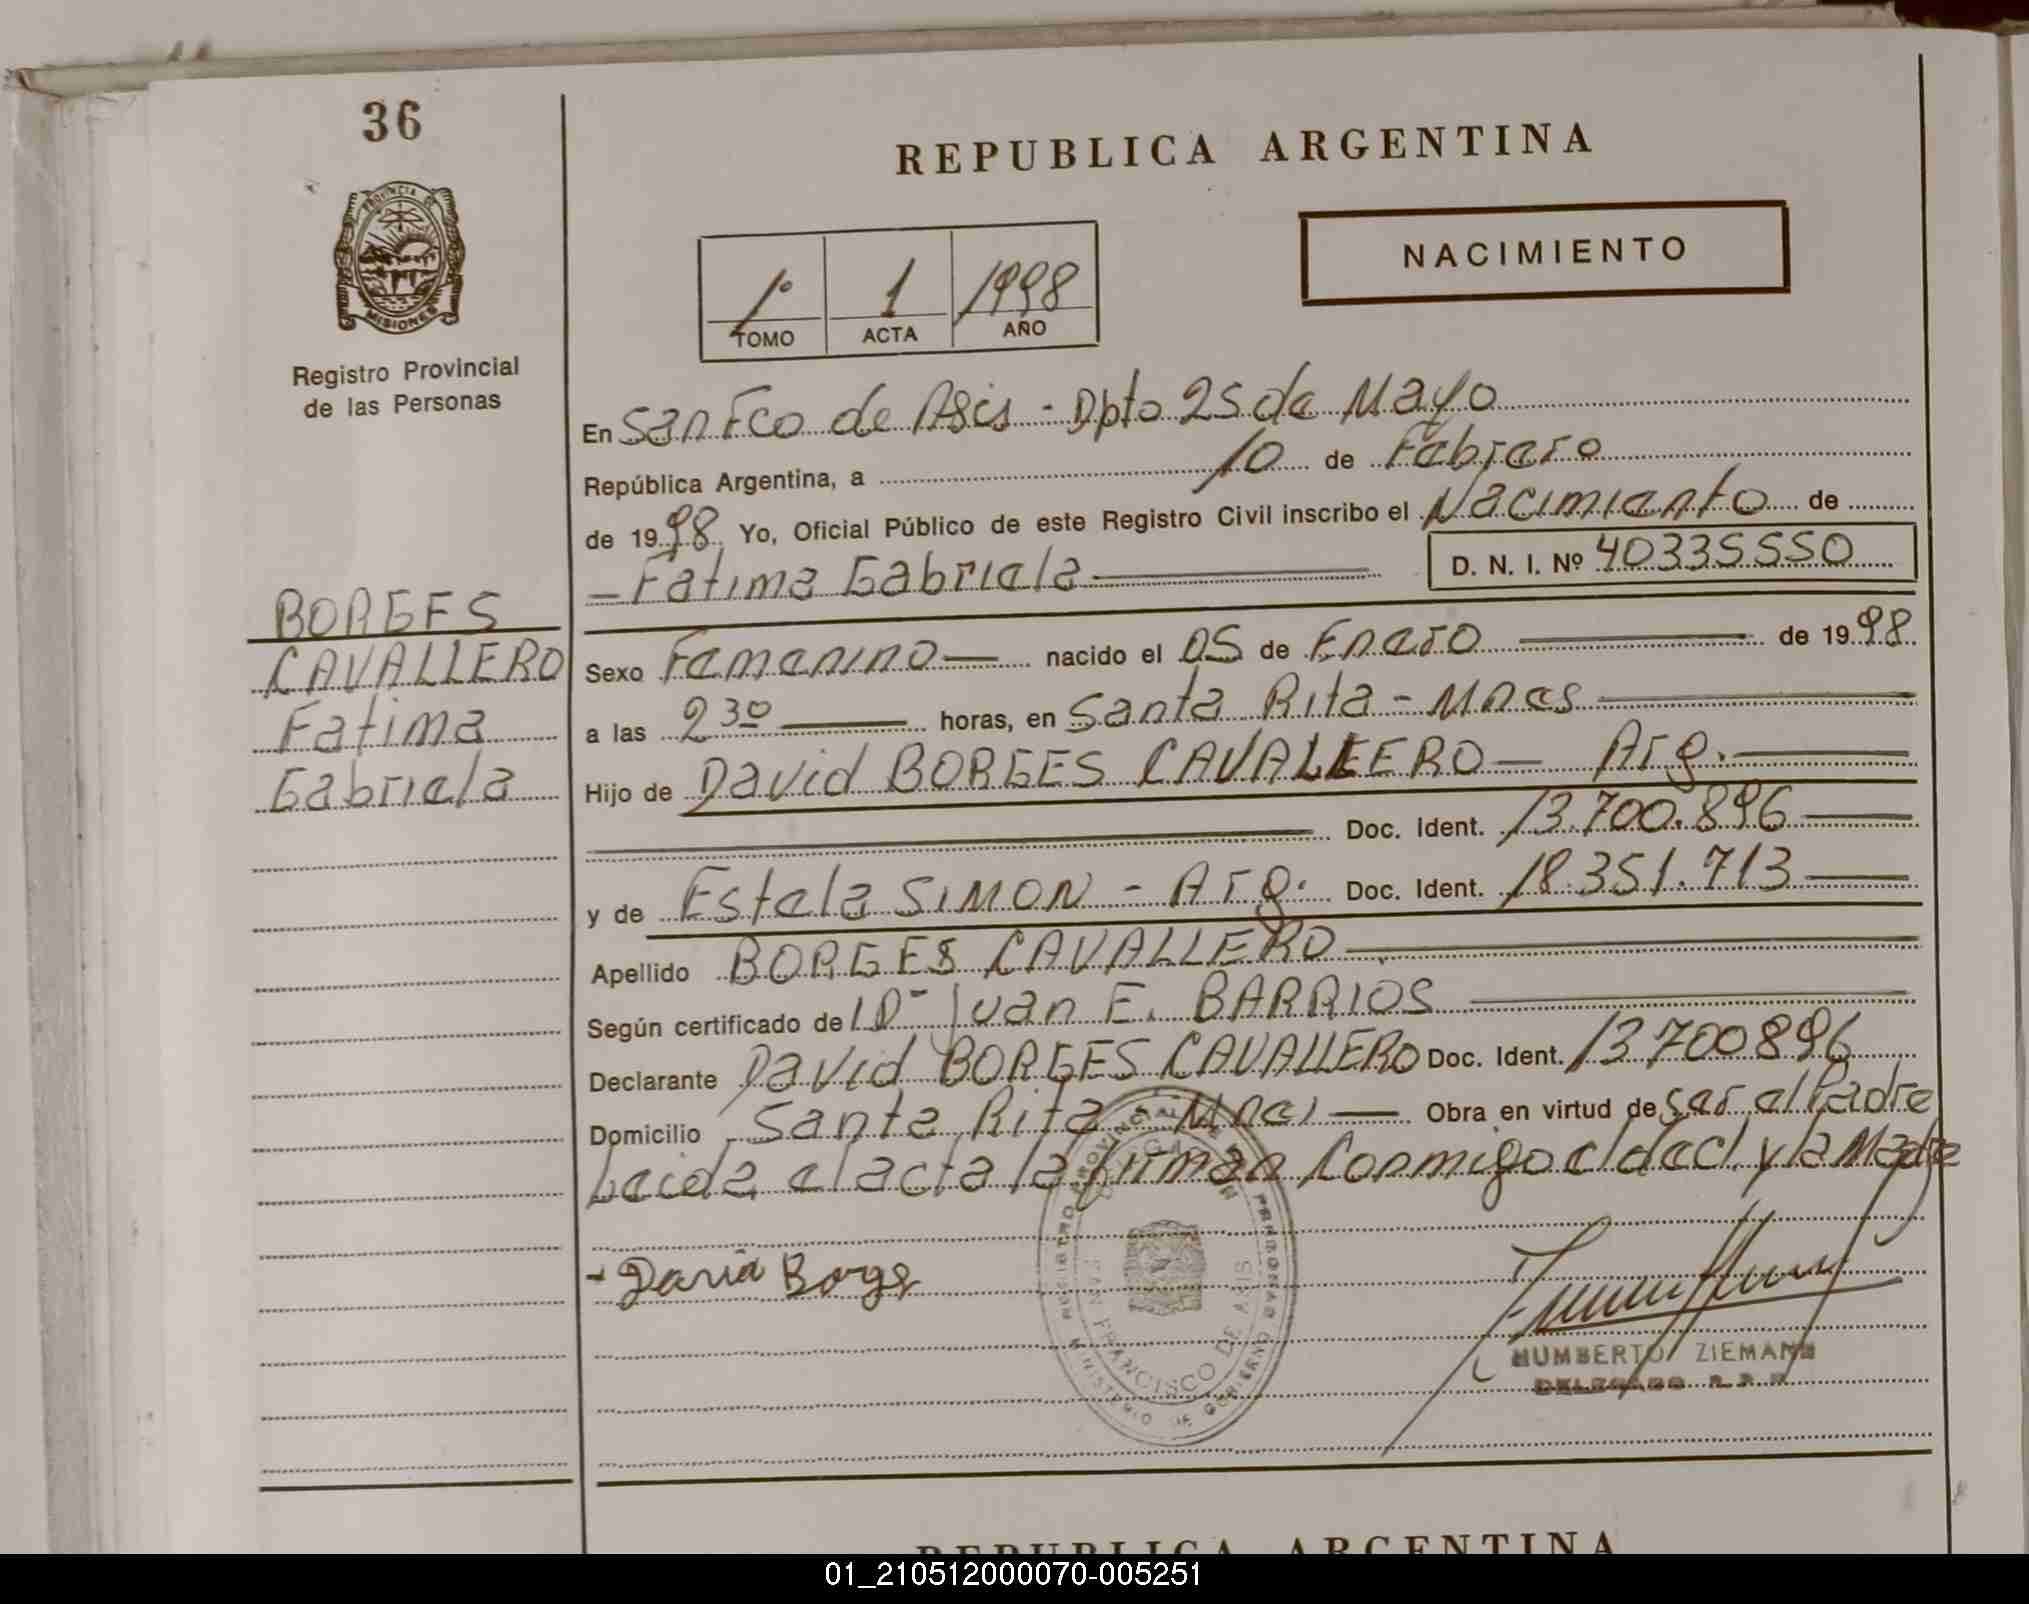 36
PROVINCIA DE
MISIONES
Registro Provincial
de las Personas
BORGES
CAVALLERO
Fatima
Gabriela
REPUBLICA ARGENTINA
NACIMIENTO
1º 1 1998
TOMO ACTA AÑO
En San Fco de Asis - Dpto 25 de Mayo
República Argentina, a 10 de Febrero
de 1998 Yo, Oficial Público de este Registro Civil inscribo el Nacimiento de
- Fatima Gabriela D. N. I. Nº 40335550
Sexo Femenino nacido el 05 de Enero de 1998
a las 2 30 horas, en Santa Rita - Mnes
Hijo de David BORGES CAVALLERO - Arg.
Doc. Ident. 13.700.896
y de Estela SIMON - Arg. Doc. Ident. 18.351.713
Apellido BORGES CAVALLERO
Según certificado de Juan E. BARRIOS
Declarante David BORGES CAVALLERO Doc. Ident. 13700896
Domicilio Santa Rita Mnes Obra en virtud de ser el Padre
Leida el acta la firman conmigo el decl. y la Madre
- David Borges
REGISTRO PROVINCIAL DE LAS PERSONAS
MINISTERIO DE GOBIERNO
SAN FRANCISCO DE ASIS
HUMBERTO ZIEMANN
DELEGADO R.P.P.
REPUBLICA ARGENTINA
01_210512000070-005251